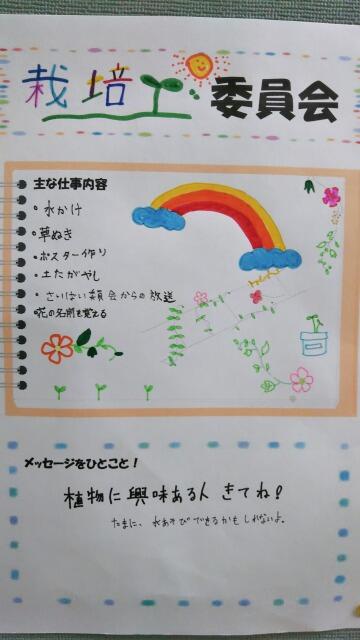 栽培委員会
主な仕事内容
・水かけ
・草ぬき
・ポスター作り
・土たがやし
・さいばい委員会からの放送
・花の名前を覚える
メッセージをひとこと!
植物に興味ある人きてね!
たまに、水あそびできるかもしれないよ。